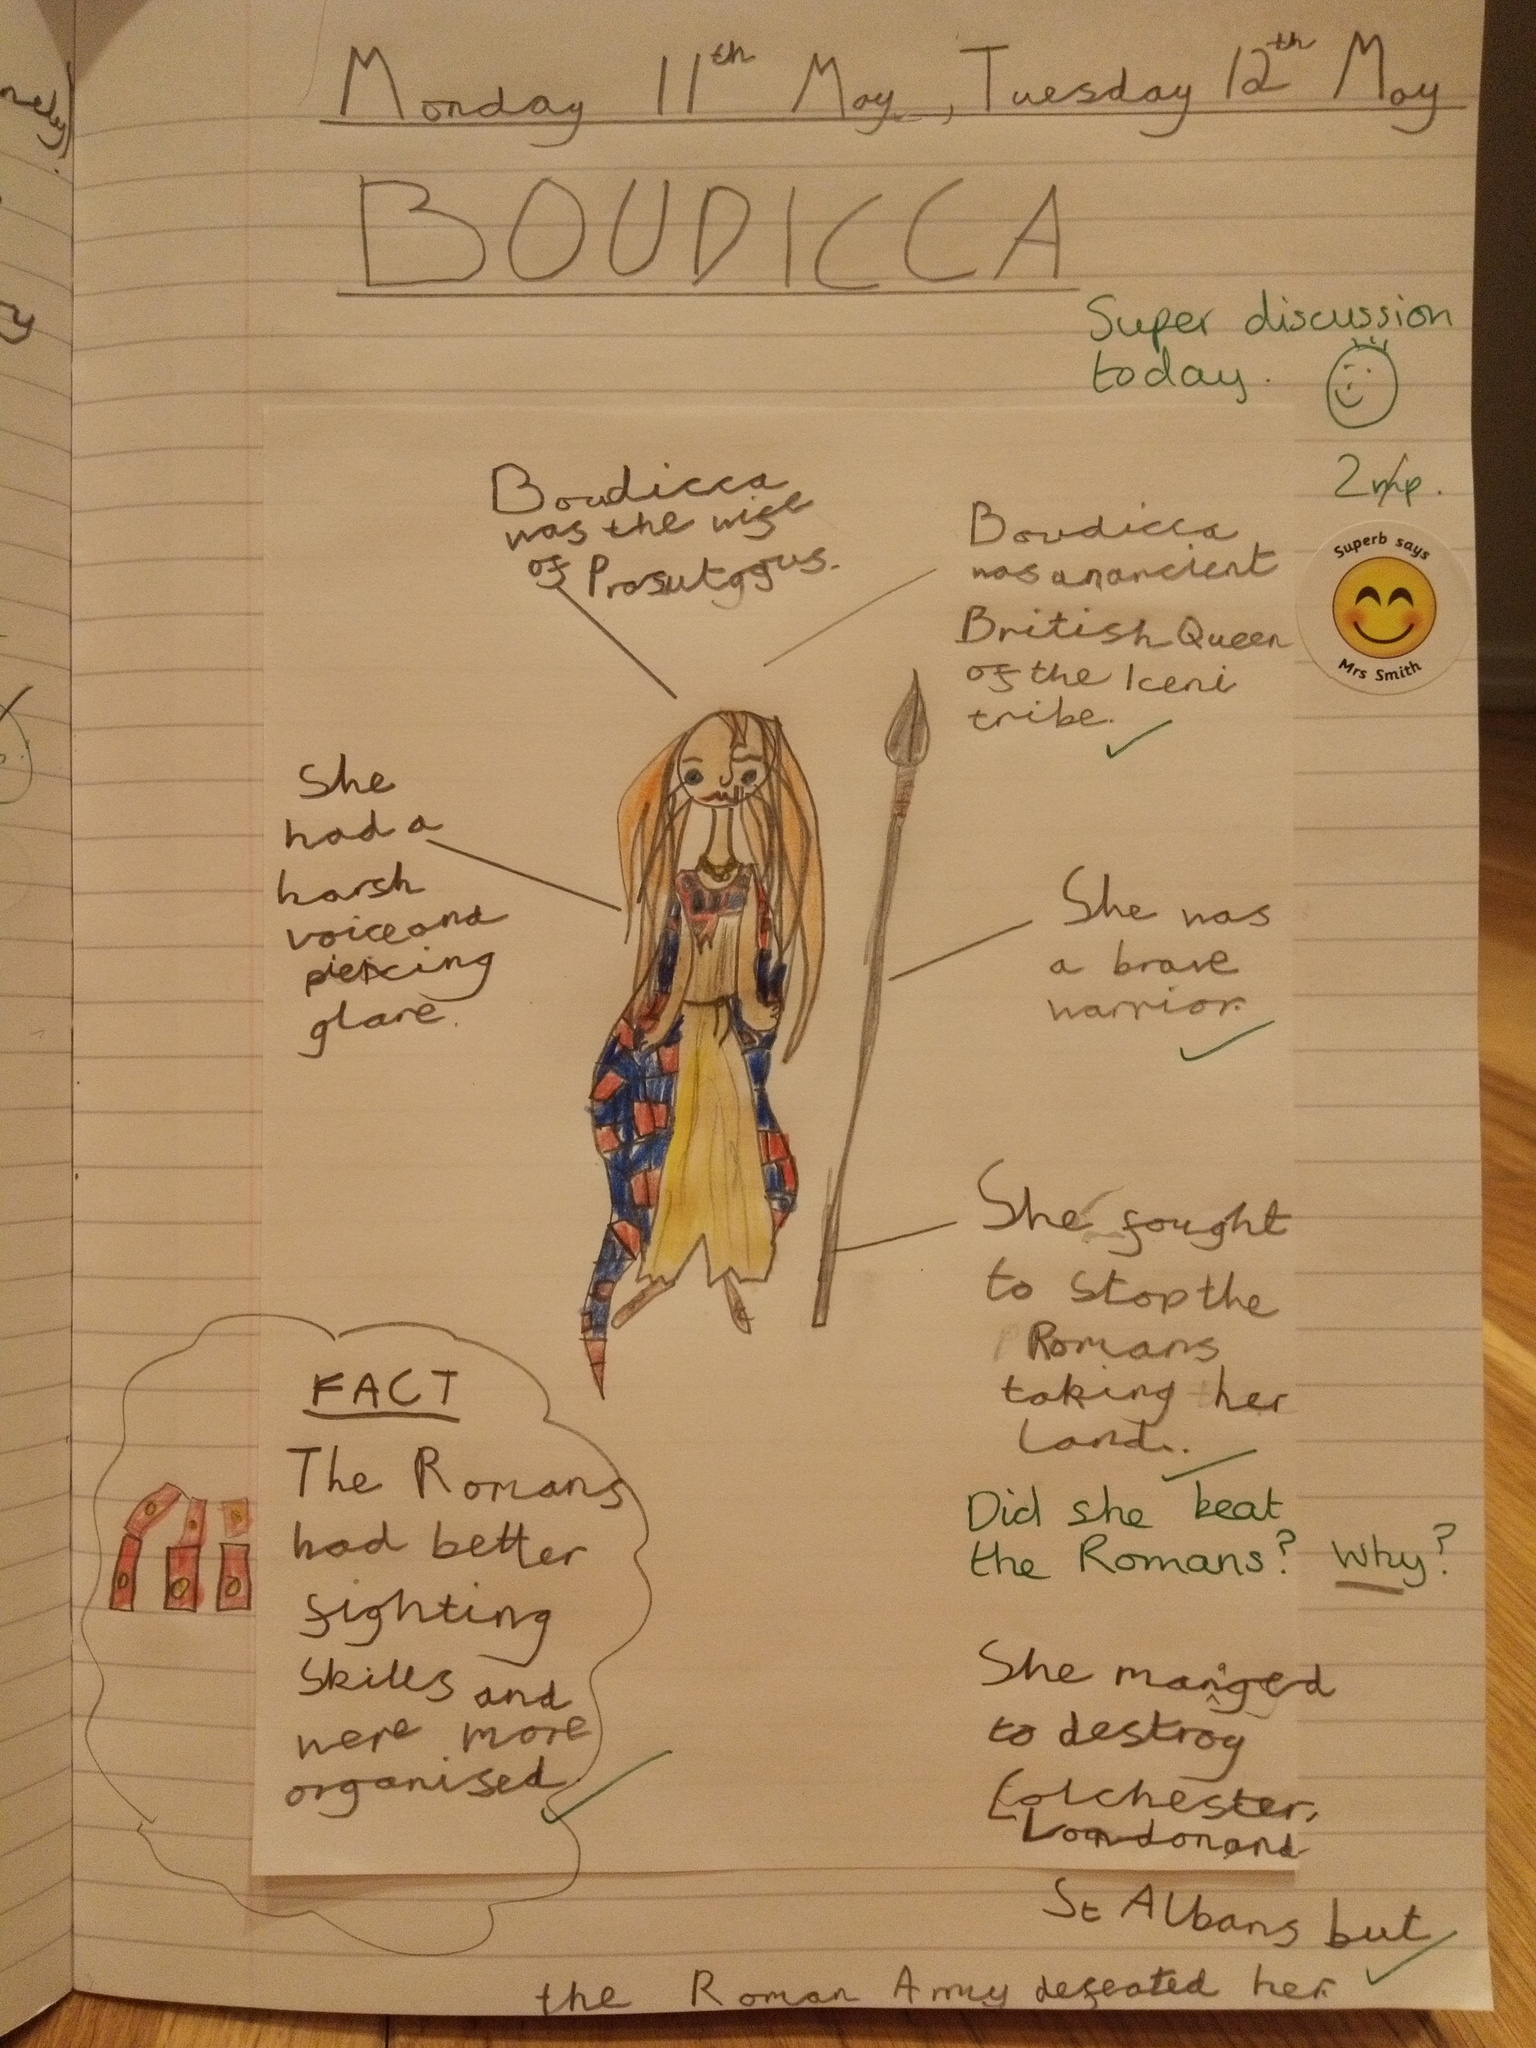 Monday 11th May, Tuesday 12th May
BOUDICCA
Super discussion
today.
2mp.
Superb says
Mrs Smith
Boudicca
was the wife
of Prasutagus.
Boudicca
was an ancient
British Queen
of the Iceni
tribe.
She
had a
harsh
voice and
piercing
glare.
She was
a brave
warrior.
She fought
to stop the
Romans
taking her
land.
Did she beat
the Romans? Why?
FACT
The Romans
had better
fighting
skills and
were more
organised
She manged
to destroy
Colchester,
London and
St Albans but
the Roman Army defeated her